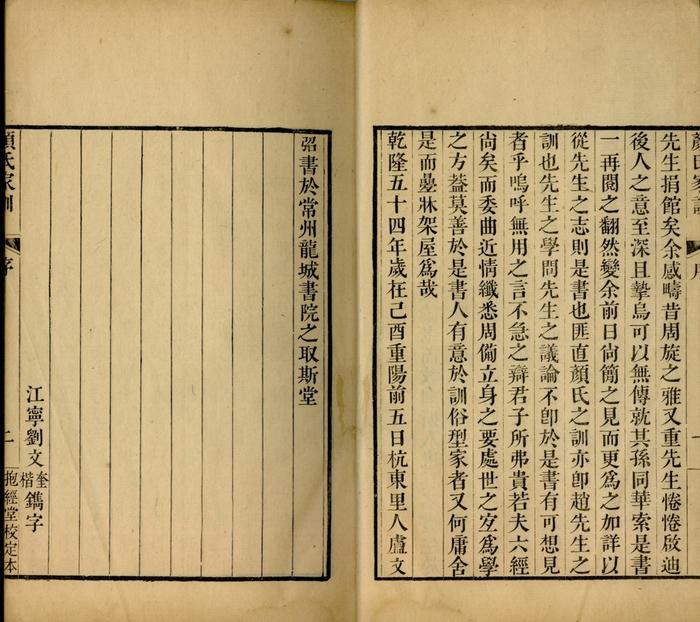 顏氏家訓
序
先生捐館矣余感疇昔周旋之雅又重先生惓惓啟迪
後人之意至深且摯烏可以無傳就其孫同華索是書
一再閱之翻然變余前日尙簡之見而更爲之加詳以
從先生之志則是書也匪直顏氏之訓亦卽趙先生之
訓也先生之學問先生之議論不卽於是書有可想見
者乎嗚呼無用之言不急之辯君子所弗貴若夫六經
尙矣而委曲近情纖悉周僃立身之要處世之宐爲學
之方葢莫善於是書人有意於訓俗型家者又何庸舍
是而曡牀架屋爲哉
乾隆五十四年歲在己酉重陽前五日杭東里人盧文
弨書於常州龍城書院之取斯堂
江寧劉文奎楷鐫字
顏氏家訓
序
二
抱經堂校定本